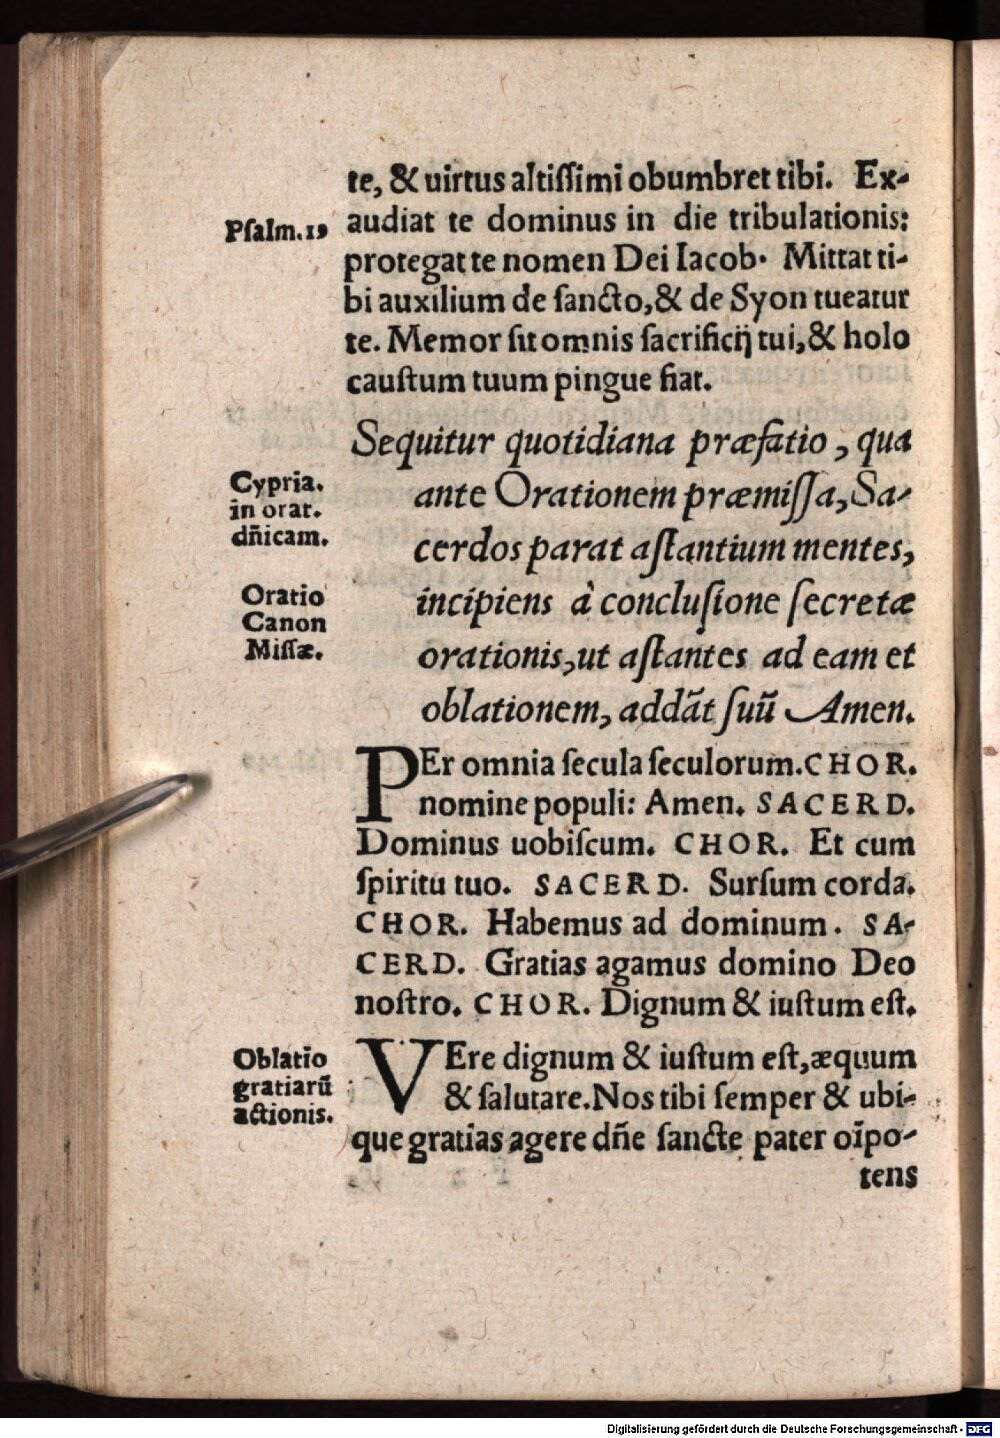 te, & uirtus altiſſimi obumbret tibi. Ex-
Pſalm.19
audiat te dominus in die tribulationis:
protegat te nomen Dei Iacob. Mittat ti-
bi auxilium de ſancto, & de Syon tueatur
te. Memor ſit omnis ſacrificij tui, & holo
cauſtum tuum pingue fiat.
Sequitur quotidiana præfatio, qua
Cypria.
in orat.
dñicam.
ante Orationem præmiſſa, Sa-
cerdos parat aſtantium mentes,
Oratio
Canon
Miſſæ.
incipiens à concluſione ſecretæ
orationis, ut aſtantes ad eam et
oblationem, addāt ſuū Amen.
PEr omnia ſecula ſeculorum. CHOR.
nomine populi: Amen. SACERD.
Dominus uobiſcum. CHOR. Et cum
ſpiritu tuo. SACERD. Surſum corda.
CHOR. Habemus ad dominum. SA-
CERD. Gratias agamus domino Deo
noſtro. CHOR. Dignum & iuſtum eſt.
Oblatio
gratiarū
actionis.
VEre dignum & iuſtum eſt, æquum
& ſalutare. Nos tibi ſemper & ubi-
que gratias agere dñe ſancte pater oīpo-
tens
Digitalisierung gefördert durch die Deutsche Forschungsgemeinschaft - DFG